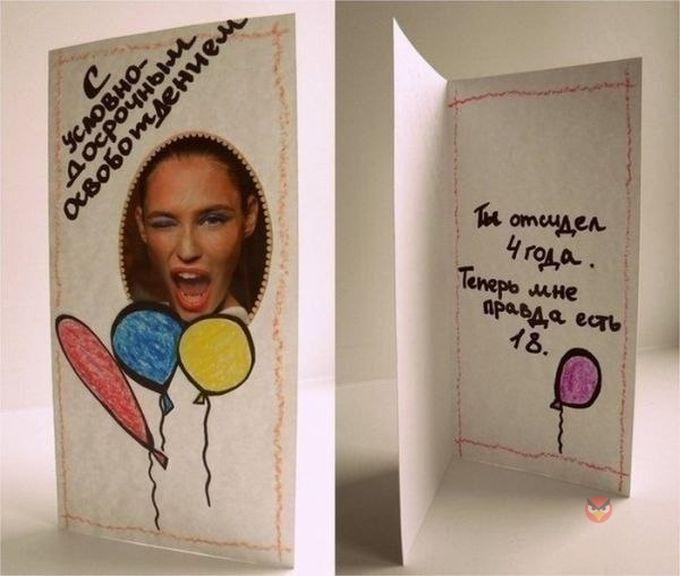 С
условно-
досрочным
освобождением
Ты отсидел
4 года.
Теперь мне
правда есть
18.